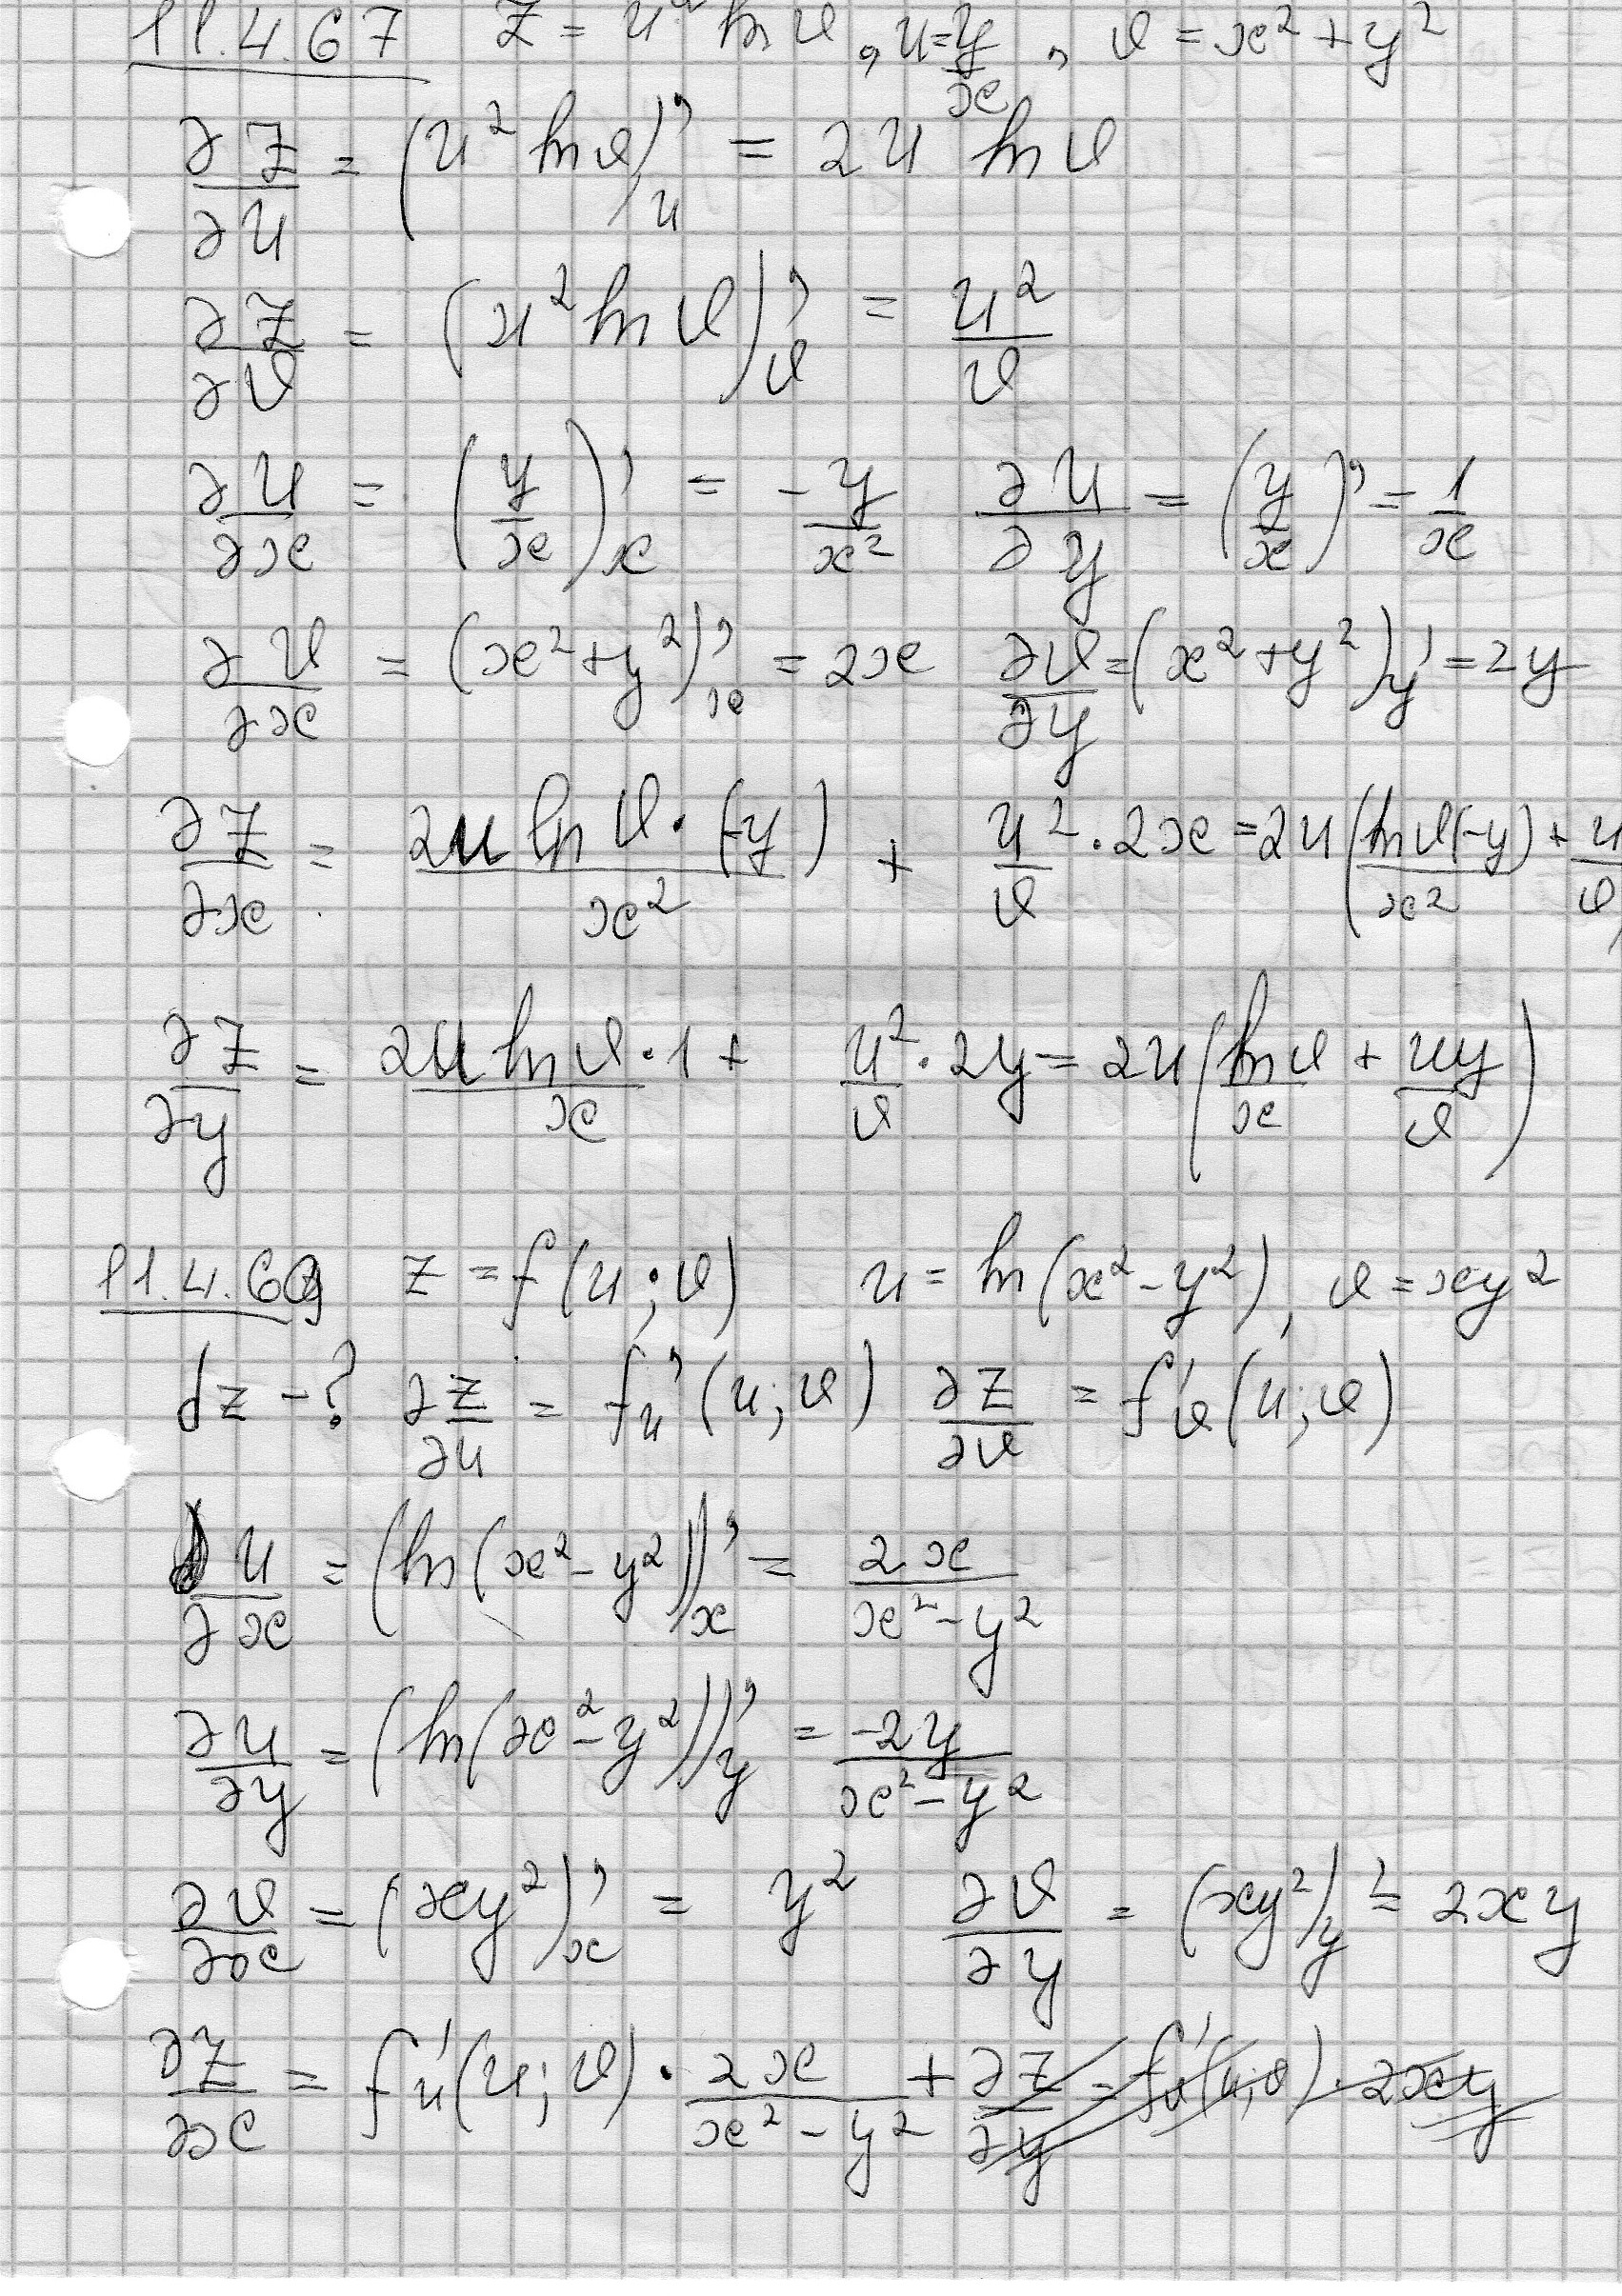 11.4.67 z = u² ln v, u = y/x, v = x² + y²
∂z/∂u = (u² ln v)'u = 2u ln v
∂z/∂v = (u² ln v)'v = u²/v
∂u/∂x = (y/x)'x = -y/x² ∂u/∂y = (y/x)' = 1/x
∂v/∂x = (x²+y²)'x = 2x ∂v/∂y = (x²+y²)'y = 2y
∂z/∂x = 2u ln v·(-y)/x² + u²/v · 2x = 2u(ln v(-y)/x² + u/v
∂z/∂y = 2u ln v·1/x + u²/v · 2y = 2u(ln v/x + uy/v)
11.4.69 z = f(u;v) u = ln(x²-y²), v = xy²
dz - ? ∂z/∂u = f'u(u;v) ∂z/∂v = f'v(u;v)
∂u/∂x = (ln(x²-y²))'x = 2x/(x²-y²)
∂u/∂y = (ln(x²-y²))'y = -2y/(x²-y²)
∂v/∂x = (xy²)'x = y² ∂v/∂y = (xy²)'y = 2xy
∂z/∂x = f'u(u;v) · 2x/(x²-y²) + ∂z/∂y = f'v(u;v) · 2xy